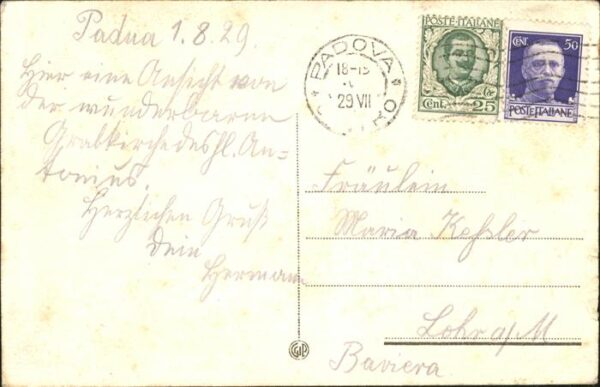 Padua 1.8.29
Hier eine Ansicht von
der wunderbaren
Grabkirche des hl. An-
tonius.
Herzlichen Gruß
Dein
Hermann
PADOVA
18-19
29 VII
POSTE ITALIANE
Cent. 25
CENT. 50
POSTE ITALIANE
Fräulein
Maria Keßler
Lohr a/M
Baviera